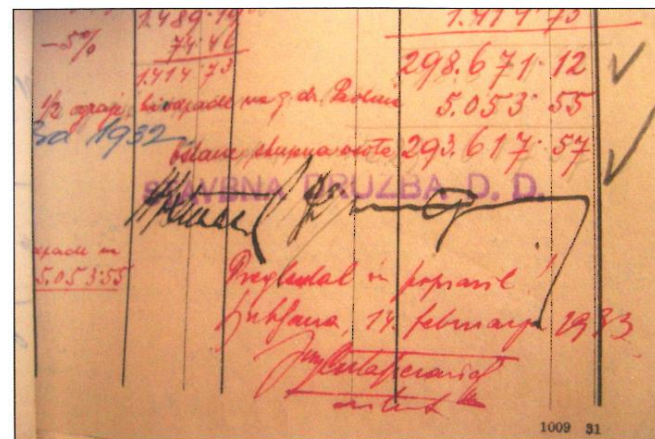 1.489·19 1.414·73
-5% 74·46
1.414·73 298.671·12
1/2 zgraje, ki odpade na g. dr. 5.053·55
za 1932
ostane skupna vsota 293.617·57
STAVBNA DRUŽBA D. D.
odpade na
5.053·55
Pregledal in popravil!
Ljubljana, 14. februarja 1933
1009 31